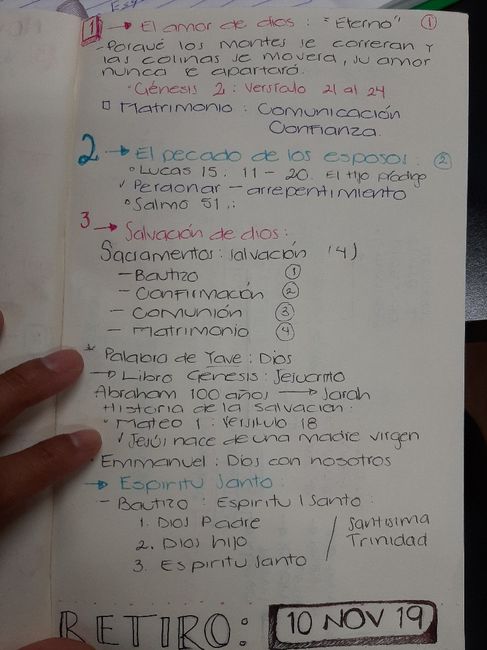 1 → El amor de dios : "Eterno" ①
- Porqué los montes se correran y
las colinas se movera, su amor
nunca se apartará.
• Génesis 2 : Versículo 21 al 24
□ Matrimonio : Comunicación
Confianza.
2 → El pecado de los esposos : ②
° Lucas 15 : 11 - 20. El Hijo prodigo
✓ Perdonar - arrepentimiento
° Salmo 51 ::
3 → Salvación de dios :
Sacramentos : salvación (4)
- Bautizo ①
- Confirmación ②
- Comunión ③
- Matrimonio ④
* Palabra de Yave : Dios
→ Libro Génesis : Jesucrito
Abraham 100 años → Sarah
Historia de la salvación :
• Mateo 1 : Versiulo 18
✓ Jesús nace de una madre virgen
• Emmanuel : Dios con nosotros
→ Espiritu Santo :
- Bautizo : Espiritu Santo :
1. Dios Padre / Santisima
2. Dios hijo / Trinidad
3. Espiritu Santo
RETIRO: 10 NOV 19